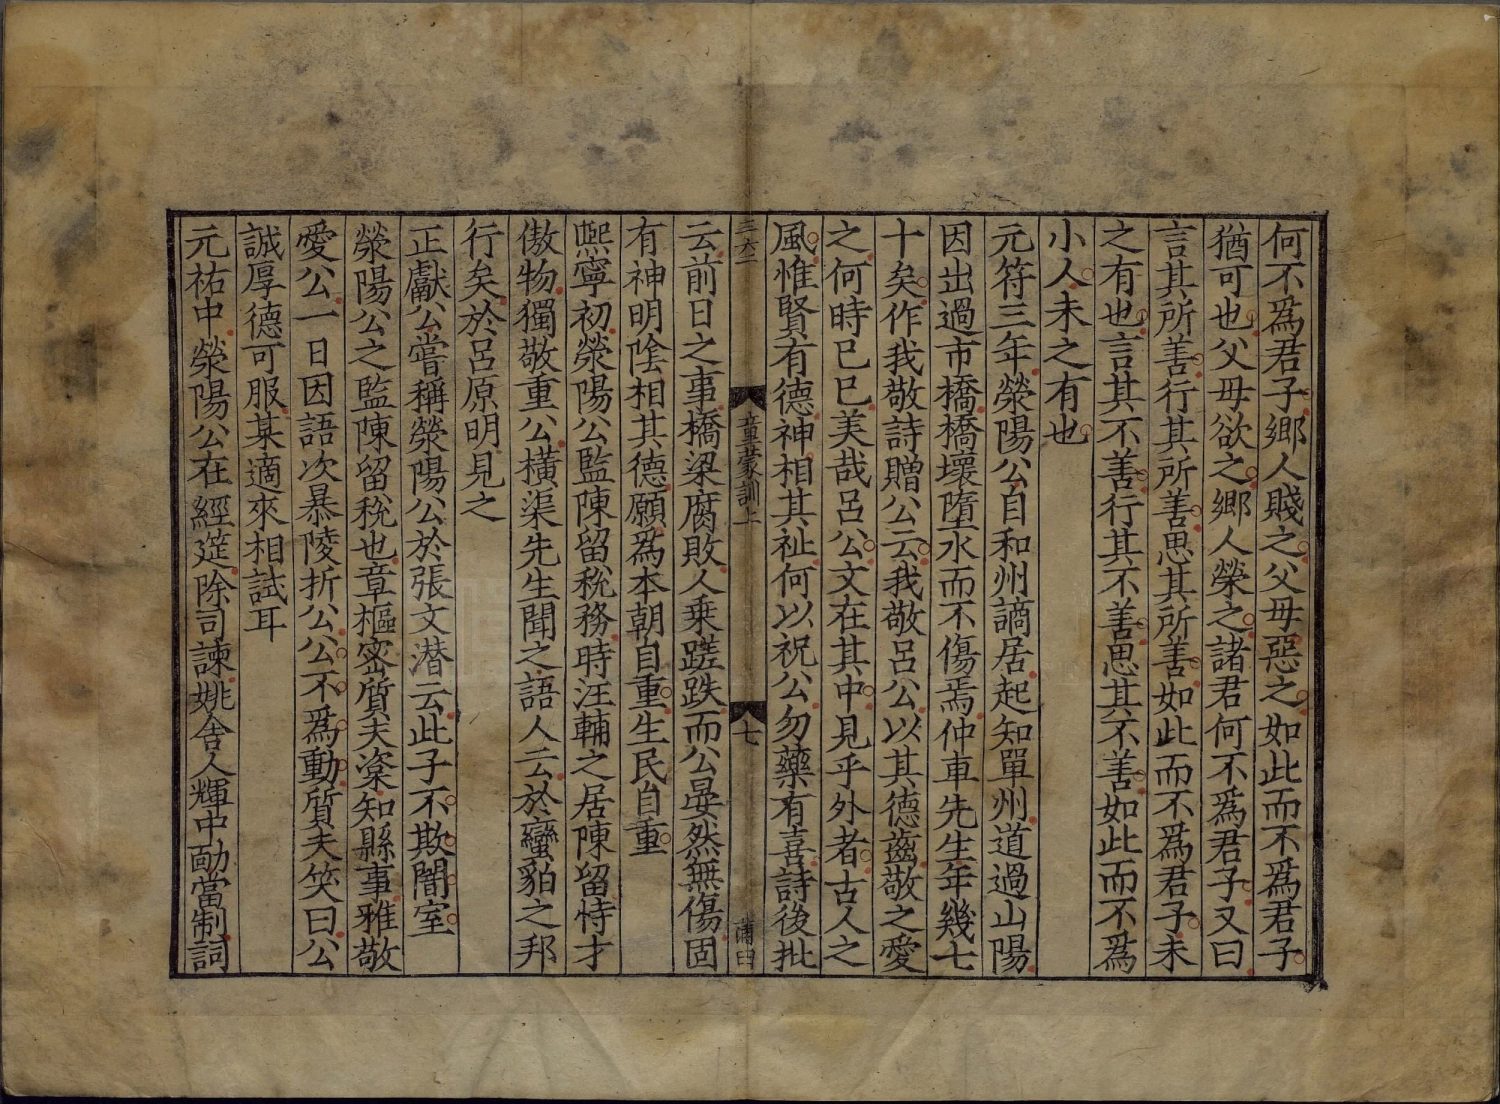 何不爲君子鄉人賤之父母惡之如此而不爲君子
猶可也父母欲之鄉人榮之諸君何不爲君子又曰
言其所善行其所善思其所善如此而不爲君子未
之有也言其不善行其不善思其不善如此而不爲
小人未之有也
元符三年滎陽公自和州謫居起知單州道過山陽
因出過市橋橋壞墮水而不傷焉仲車先生年幾七
十矣作我敬詩贈公云我敬呂公以其德齒敬之愛
之何時已已美哉呂公文在其中見乎外者古人之
風惟賢有德神相其祉何以祝公勿藥有喜詩後批
三六二
童蒙訓上
七
蒲曰
云前日之事橋梁腐敗人乗蹉跌而公晏然無傷固
有神明陰相其德願爲本朝自重生民自重
熙寧初滎陽公監陳留稅務時汪輔之居陳留恃才
傲物獨敬重公横渠先生聞之語人云於蠻貊之邦
行矣於呂原明見之
正獻公嘗稱滎陽公於張文潜云此子不欺闇室
滎陽公之監陳留稅也章樞宻質夫楶知縣事雅敬
愛公一日因語次暴陵折公公不爲動質夫笑曰公
誠厚德可服某適來相試耳
元祐中滎陽公在經筵除司諫姚舎人輝中勔當制詞